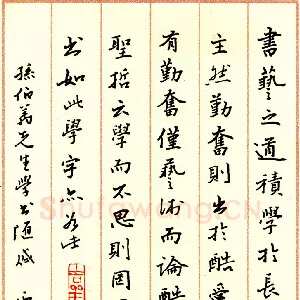 書藝之道積學於長
主然勤奮則出於酷愛
有勤奮僅藝術而論酷
聖哲云學而不思則罔
書如此學字亦如此
孫伯翔先生學書隨感
Shufawang.CN